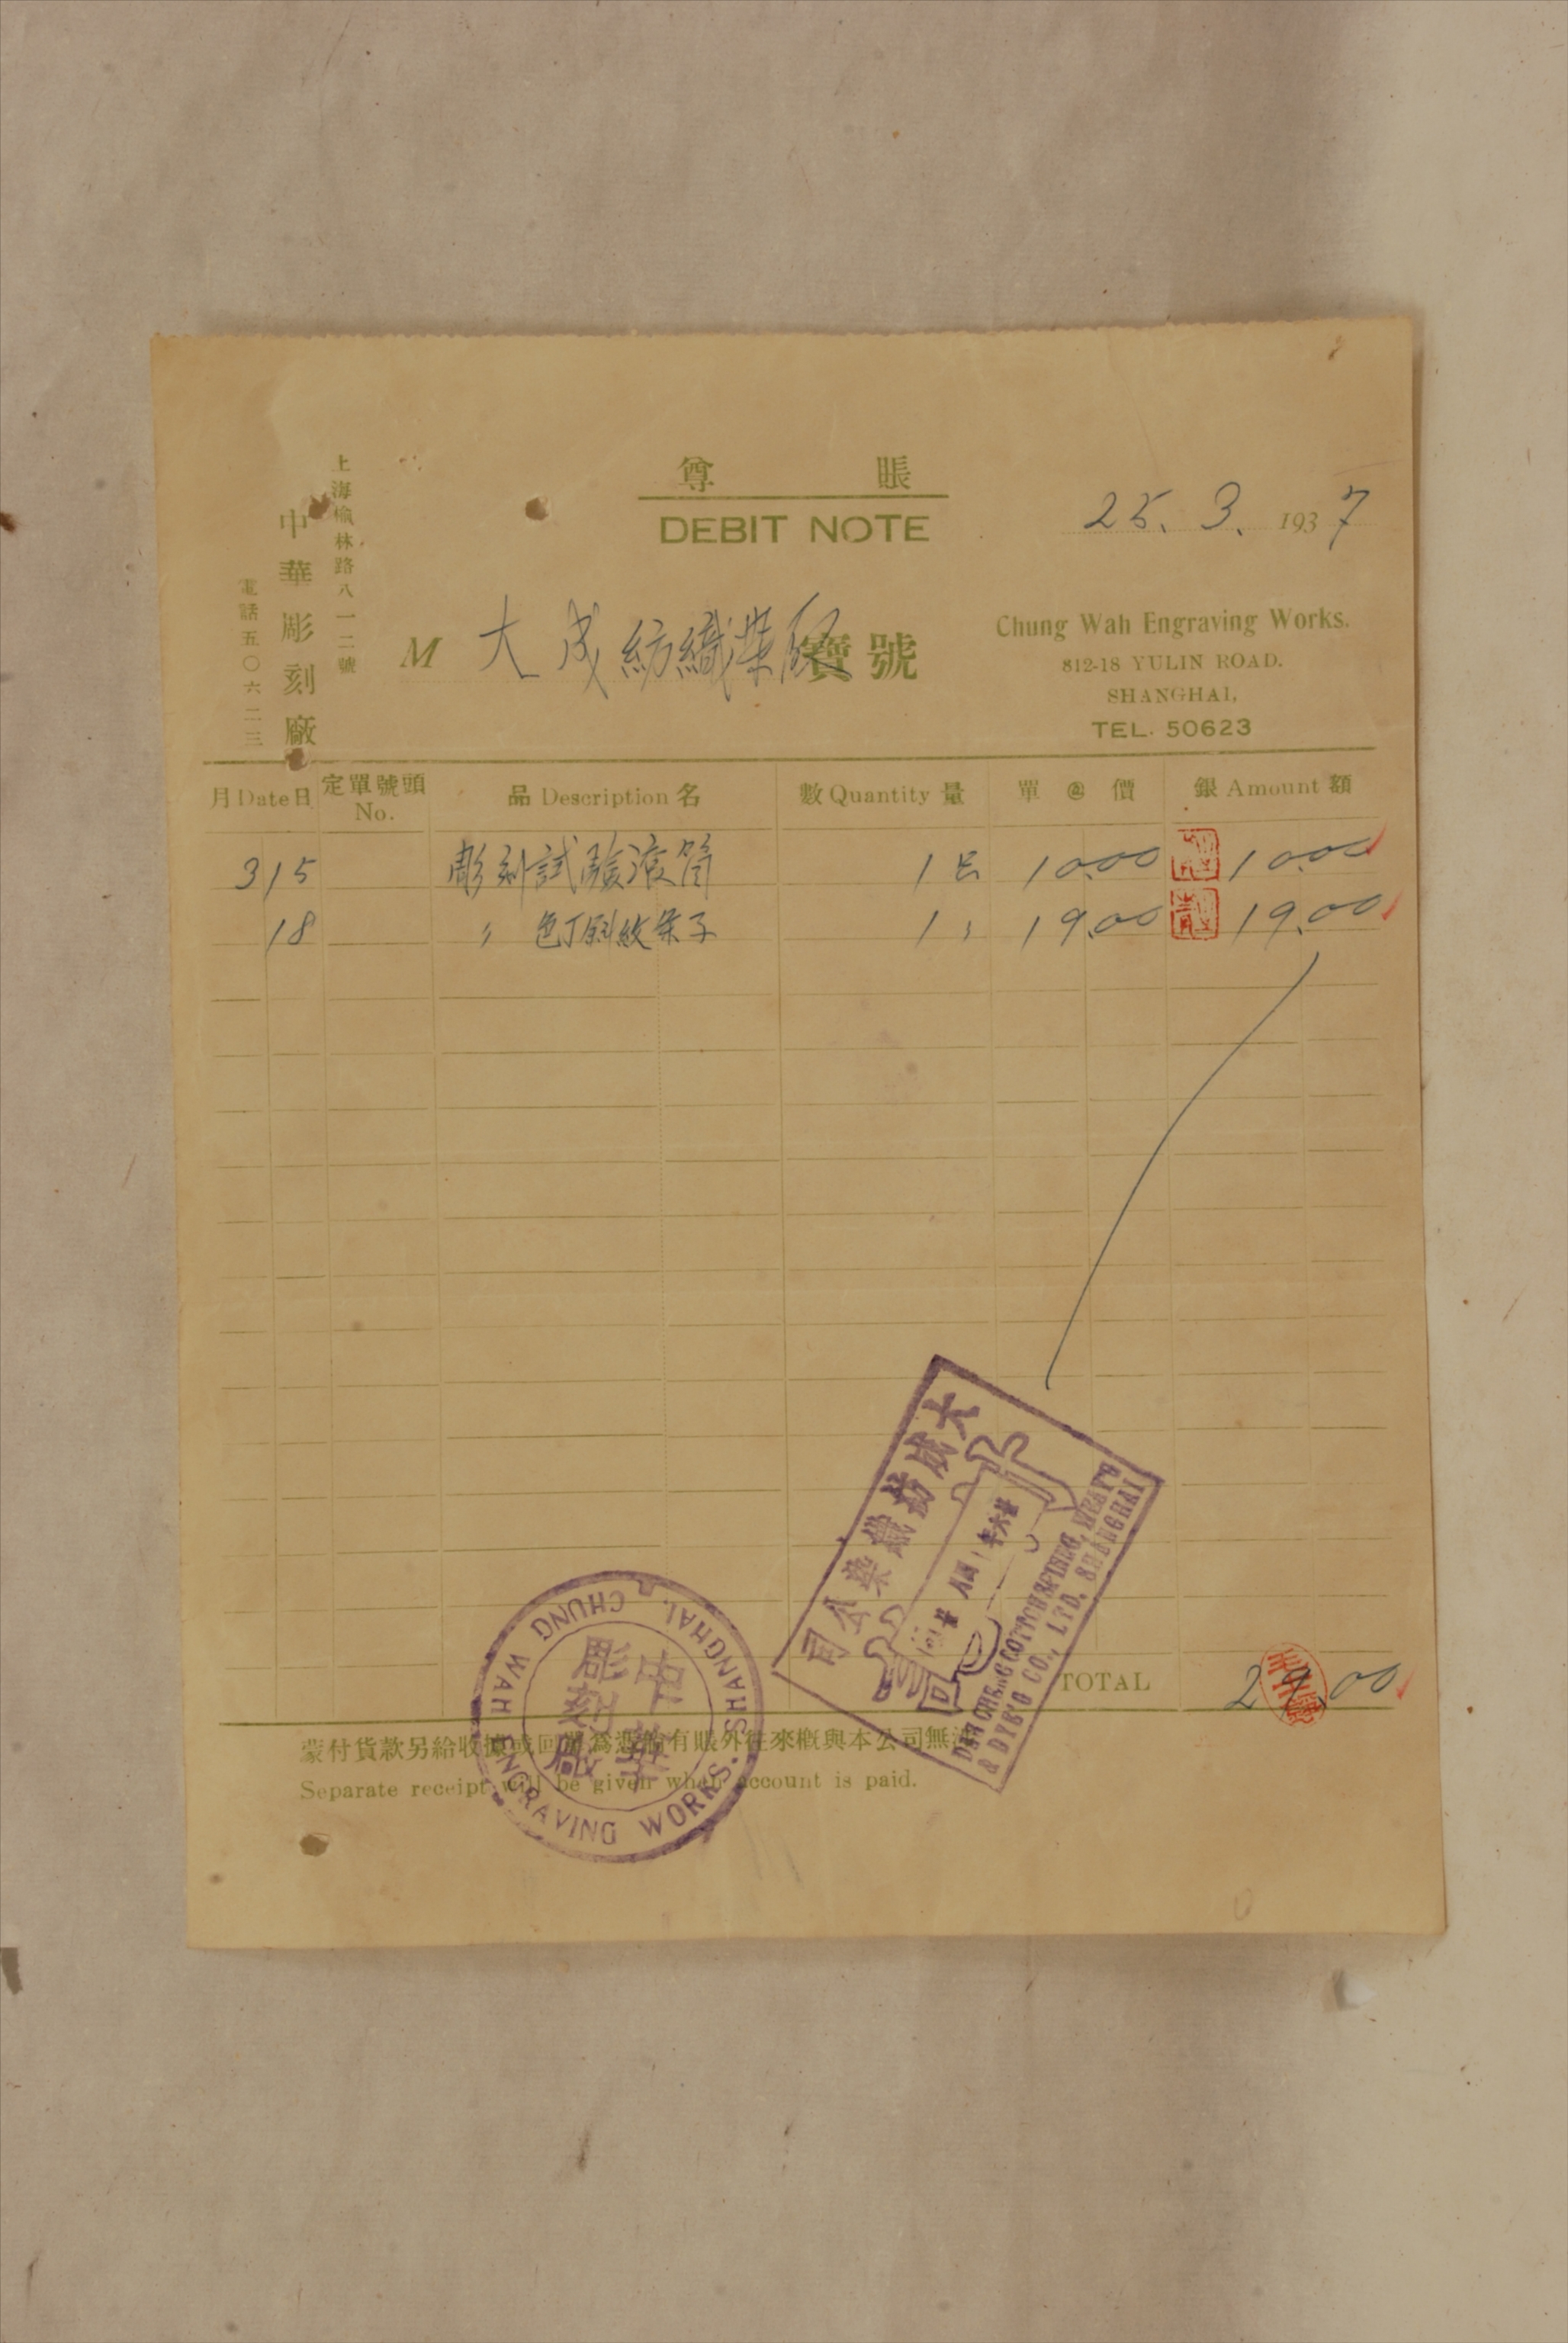 尊 賬
DEBIT NOTE
25. 3. 1937
上海榆林路八一二號
中華彫刻廠
電話五〇六二三
M 大成紡織染 寶號
Chung Wah Engraving Works.
812-18 YULIN ROAD.
SHANGHAI,
TEL. 50623
月Date日 定單號頭 No. 品 Description 名 數 Quantity 量 單 @ 價 銀 Amount 額
3 15 彫刻試驗滾筒 1 10.00 10.00
18 〃 色丁斜紋条子 1 〃 19.00 19.00
大成紡織染公司
廿六年 月廿
DAH CHENG COTTON SPINNING, WEAV'G
& DYE'G CO., LTD. SHANGHAI
TOTAL 29.00
蒙付貨款另給收據或回單為憑倘有賬外往來概與本公司無涉
Separate receipt will be given when account is paid.
CHUNG WAH ENGRAVING WORKS. SHANGHAI.
中華彫刻廠